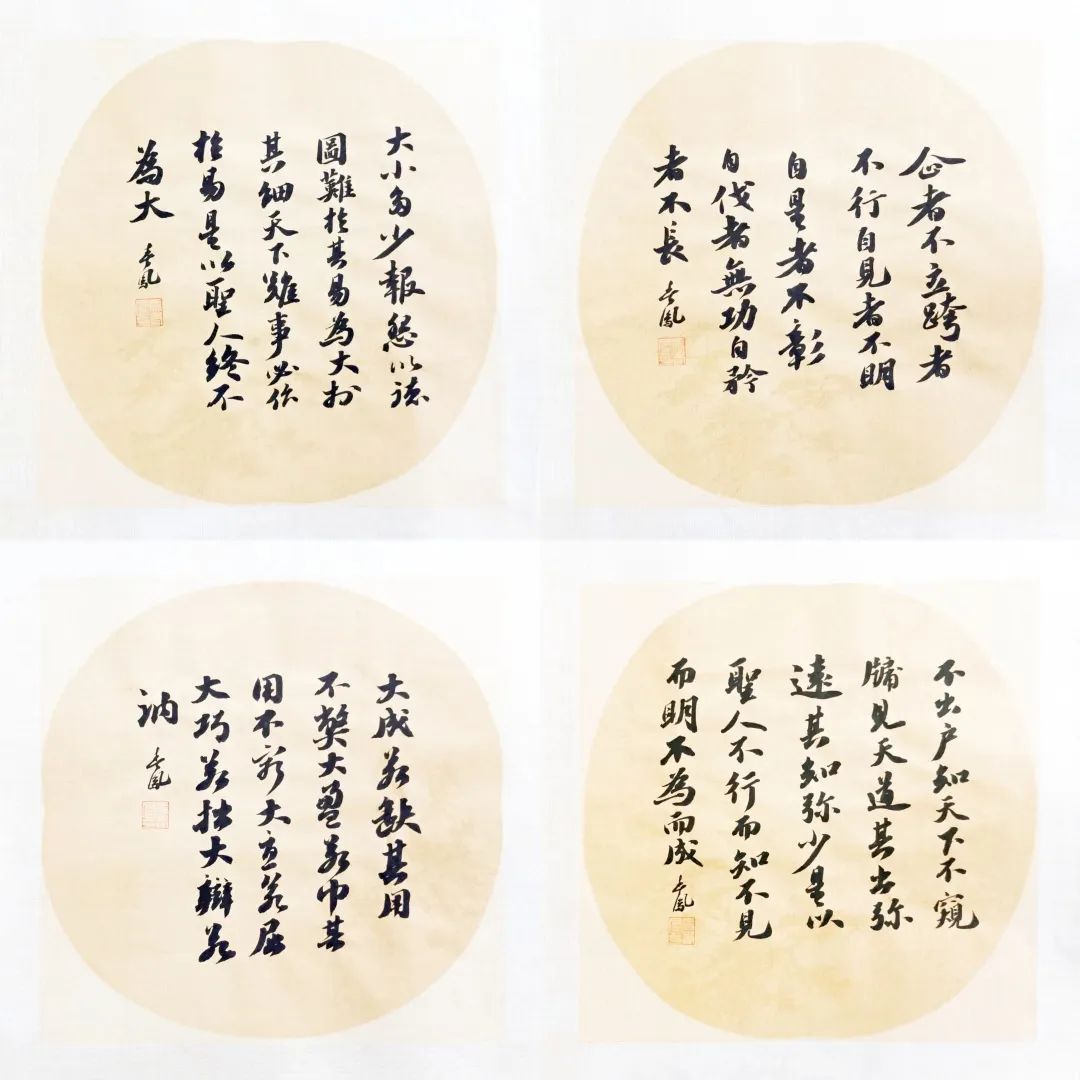 大小多少報怨以德
圖難於其易為大於
其細天下難事必作
於易是以聖人終不
為大
企者不立跨者
不行自見者不明
自是者不彰
自伐者無功自矜
者不長
大成若缺其用
不弊大盈若冲其
用不窮大直若屈
大巧若拙大辯若
訥
不出户知天下不窺
牖見天道其出弥
遠其知弥少是以
聖人不行而知不見
而明不為而成